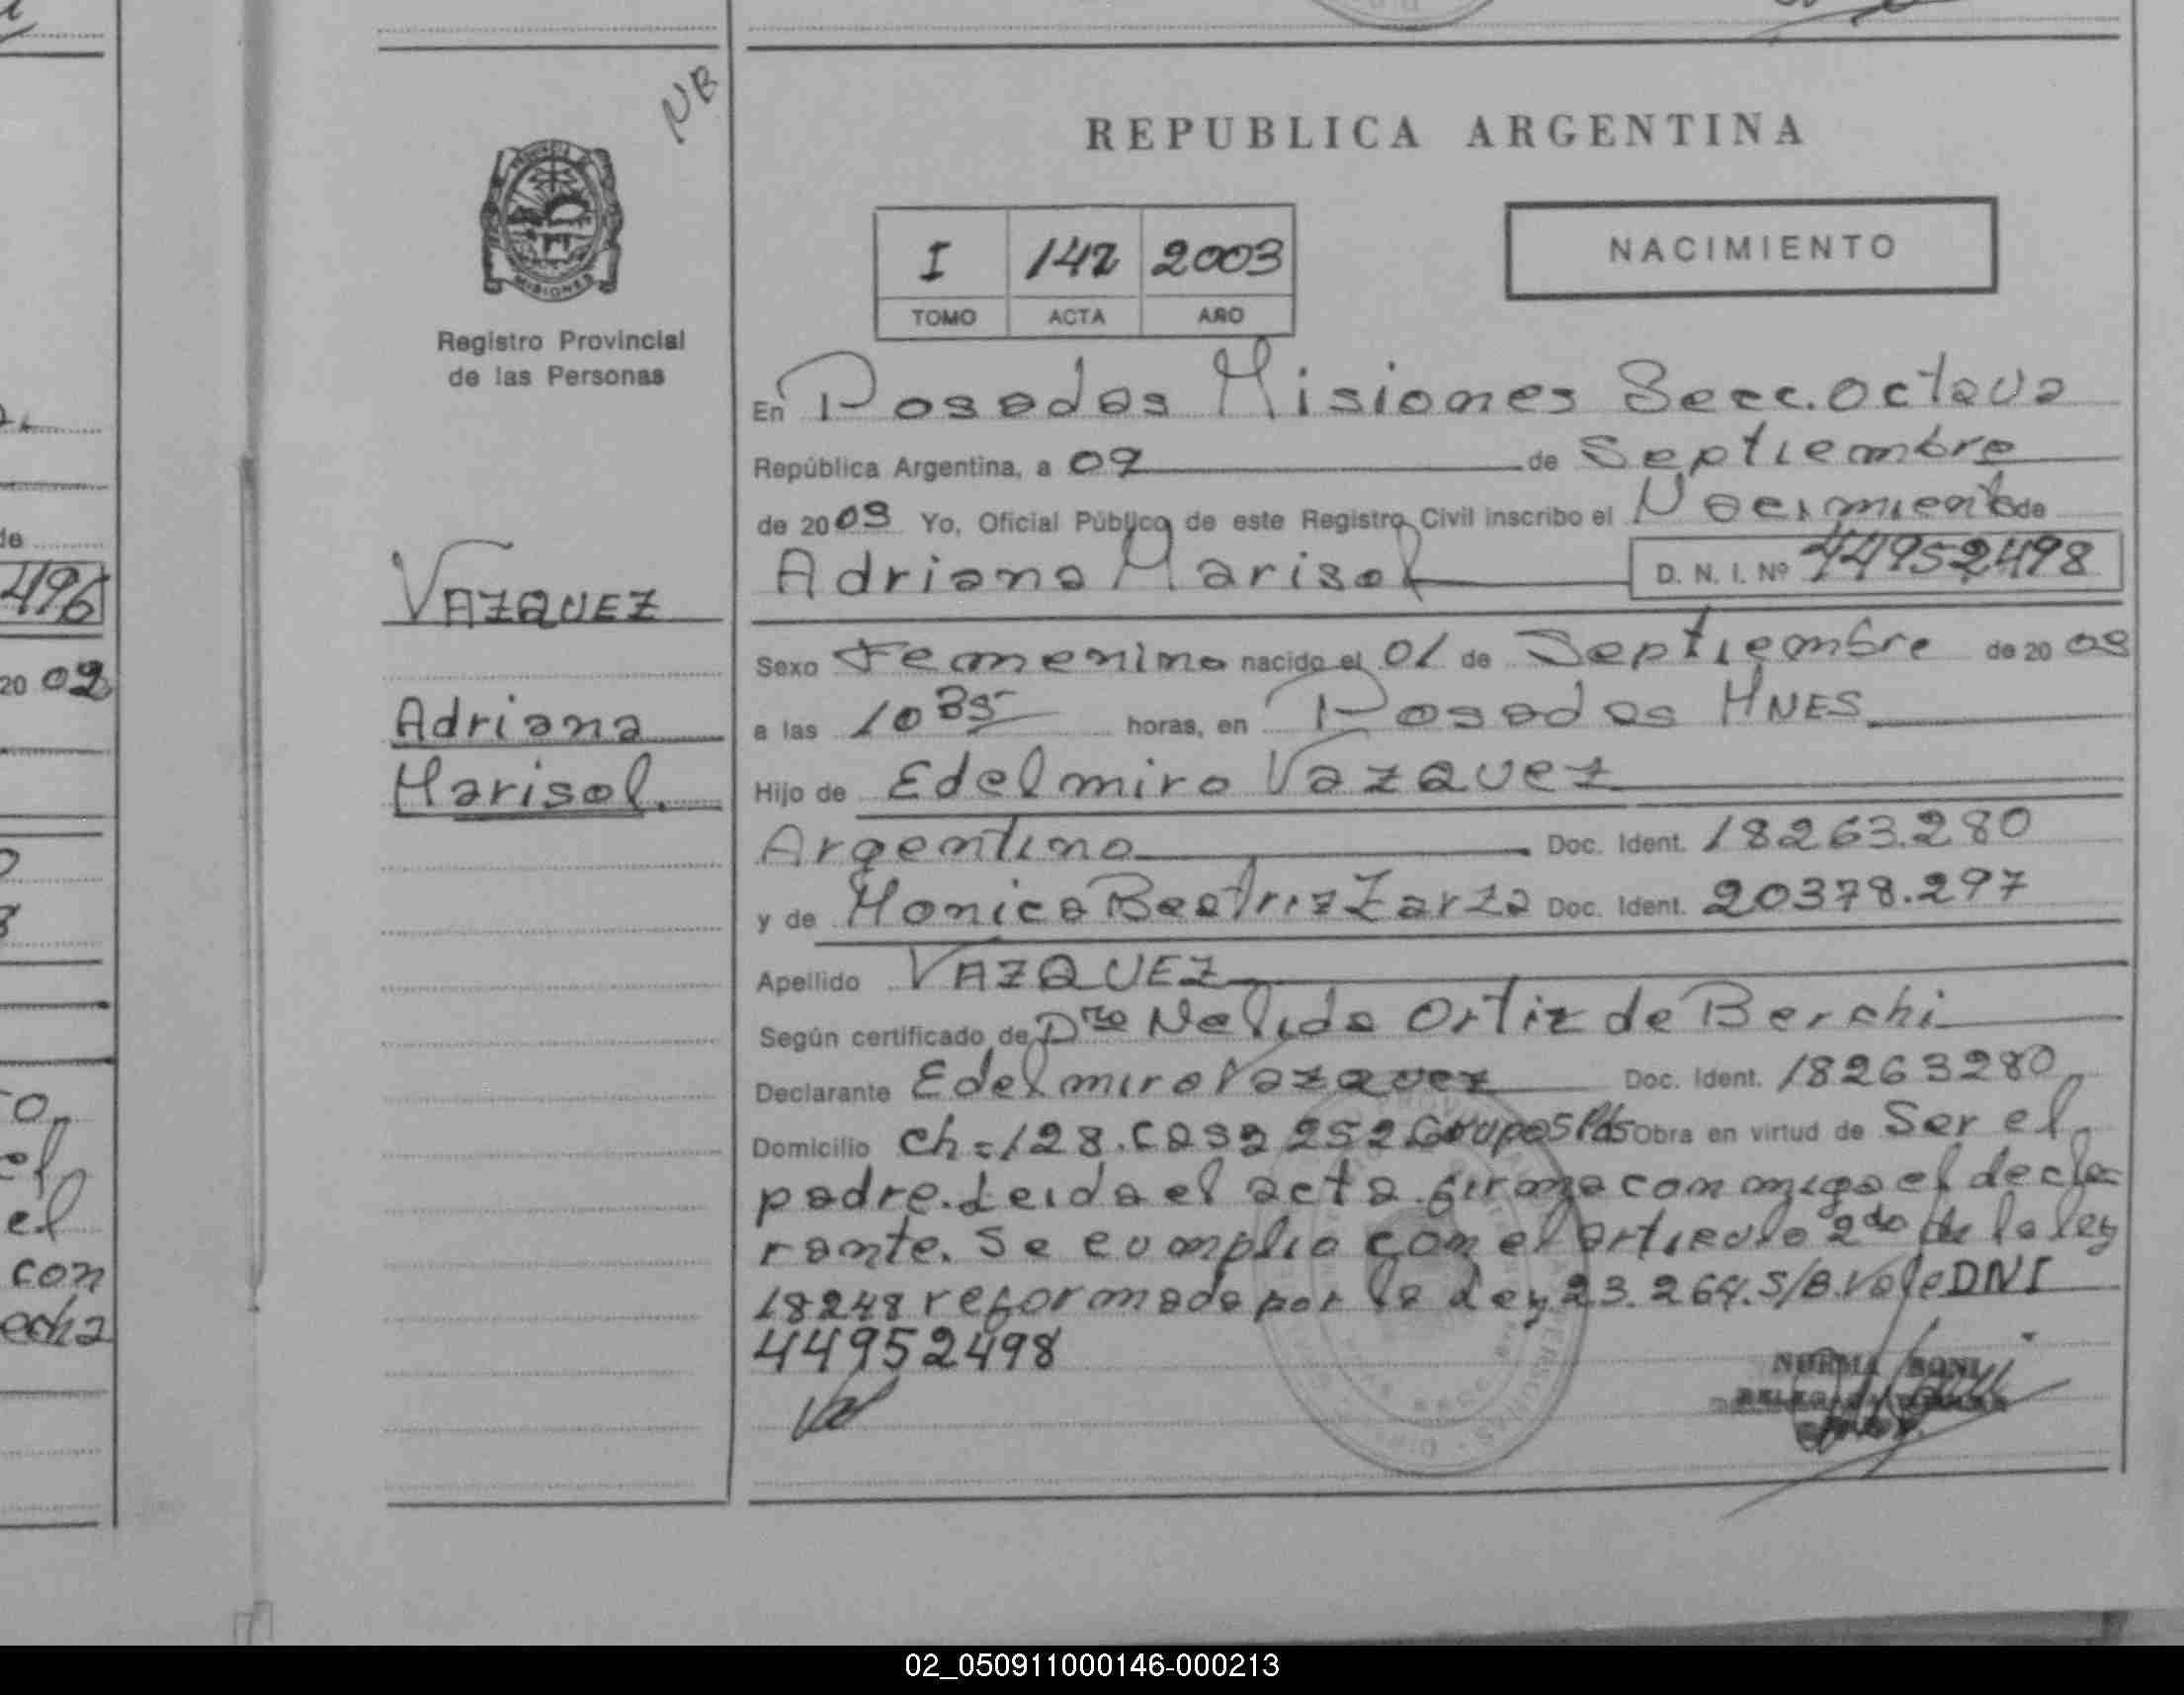 NB
REPUBLICA ARGENTINA
PROVINCIA DE
MISIONES
Registro Provincial
de las Personas
I 142 2003
TOMO ACTA AÑO
NACIMIENTO
En Posadas Misiones Secc. Octava
República Argentina, a 02 de Septiembre
de 2003 Yo, Oficial Público de este Registro Civil inscribo el Nacimiento de
Adriana Marisol D. N. I. Nº 44952498
VAZQUEZ
Adriana
Marisol.
Sexo Femenino nacido el 01 de Septiembre de 2003
a las 10 35 horas, en Posadas MNES
Hijo de Edelmiro Vazquez
Argentino Doc. Ident. 18263.280
y de Monica Beatriz Zarza Doc. Ident. 20378.297
Apellido VAZQUEZ
Según certificado de Dra Nelida Ortiz de Berchi
Declarante Edelmiro Vazquez Doc. Ident. 18263280
Domicilio ch=128.casa 252 Obra en virtud de Ser el
padre. Leida el acta firma conmigo el decla-
rante. Se cumplio con el articulo 2do de la ley
18248 reformada por la Ley 23.264. S/B. Vale DNI
44952498
NORMA BONI
496
20 02
con
echa
02_050911000146-000213